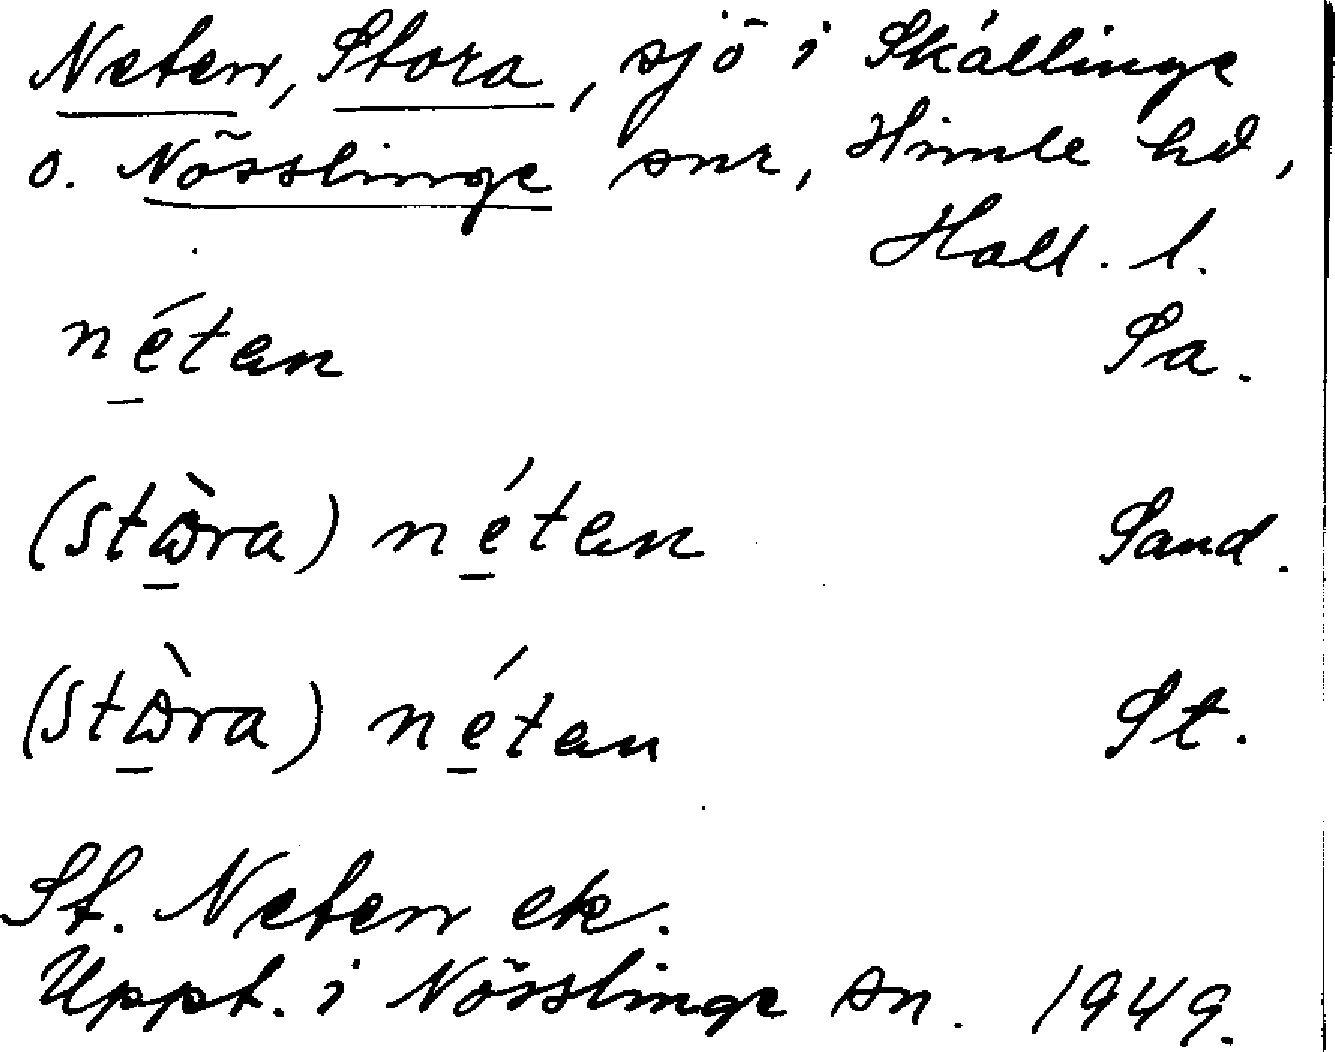 Neten, Stora, sjö i Skällinge
o. Nösslinge snr, Himle hd,
Hall. l.
nétan Sa.
(stɷ̀ra) nétan Sand.
(stɷ̀ra) nétan St.
St. Neten ek.
Uppt. i Nösslinge sn. 1949.